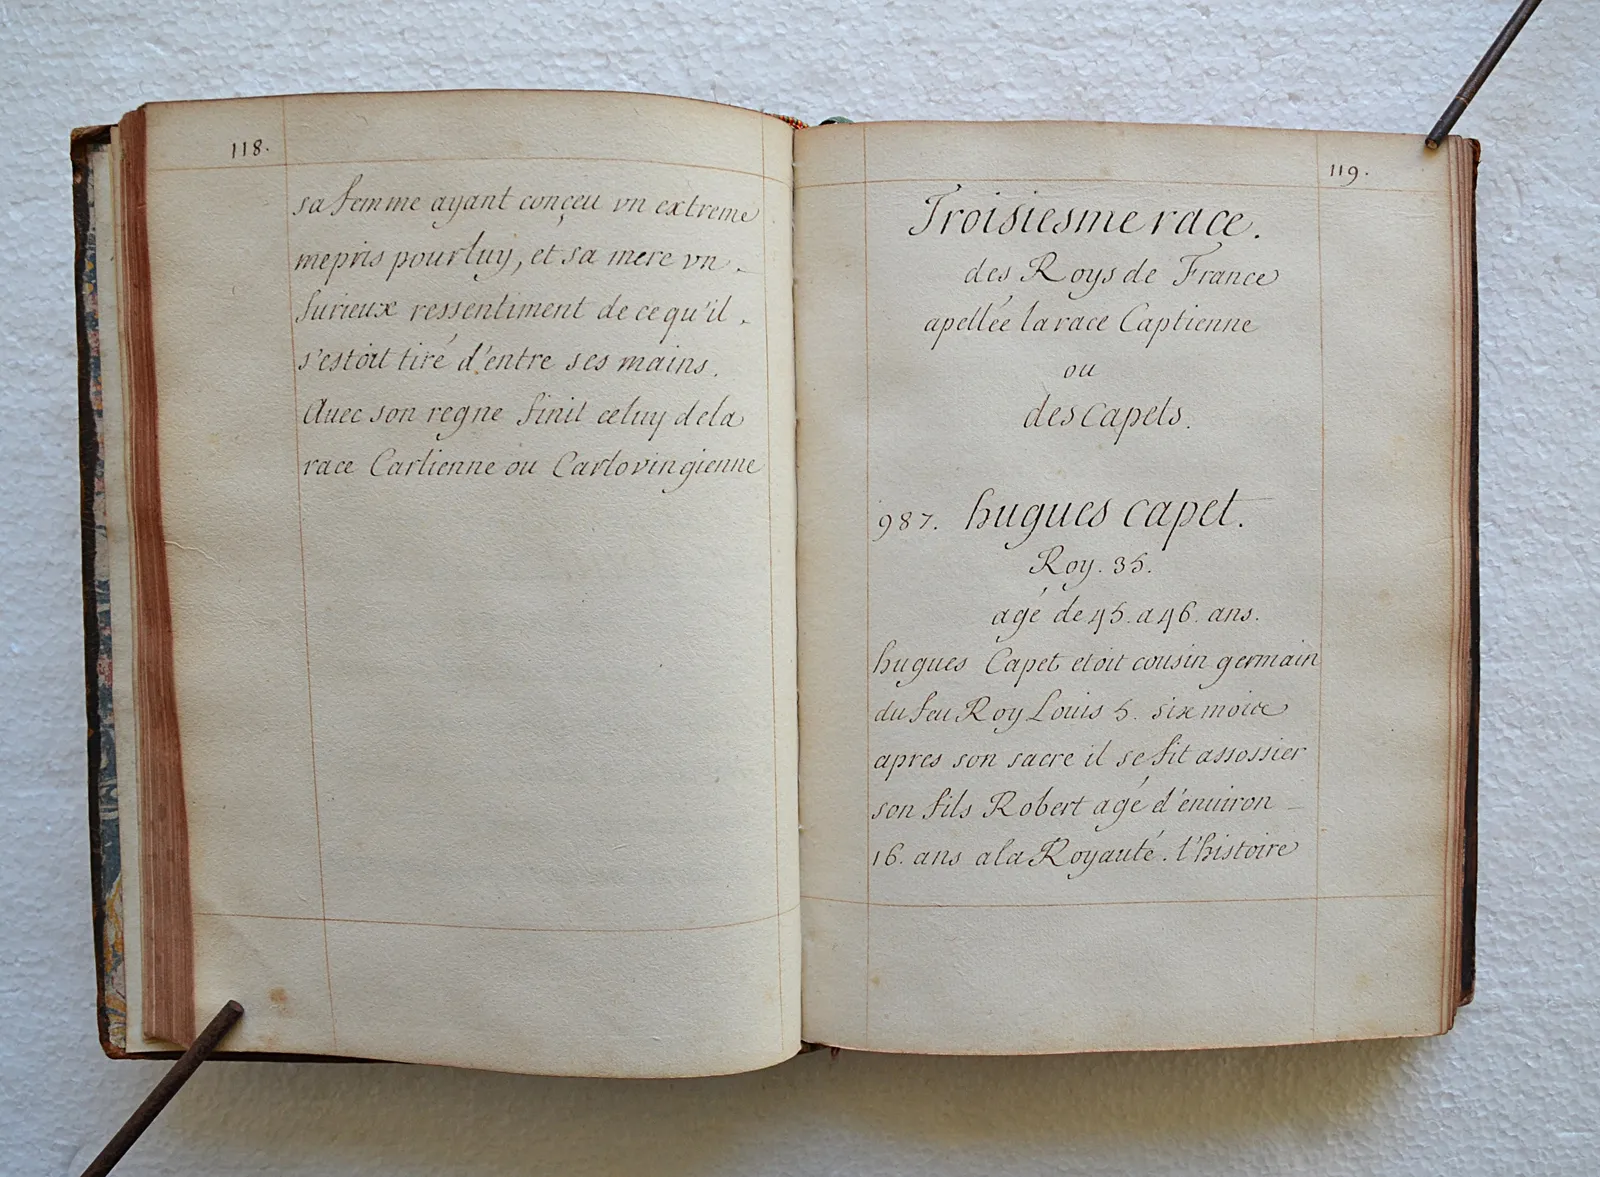 118.
sa femme ayant conçeu vn extreme
mepris pour luy, et sa mere vn
furieux ressentiment de ce qu'il
s'estoit tiré d'entre ses mains.
Auec son regne finit celuy de la
race Carlienne ou Carlovingienne
119.
Troisiesme race.
des Roys de France
apellée la race Captienne
ou
des Capets.
987. hugues capet.
Roy. 35.
agé de 45. a 46. ans.
hugues Capet etoit cousin germain
du feu Roy Louis 5. six mois
apres son sacre il se fit assossier
son fils Robert agé d'enuiron
16. ans a la Royauté. l'histoire